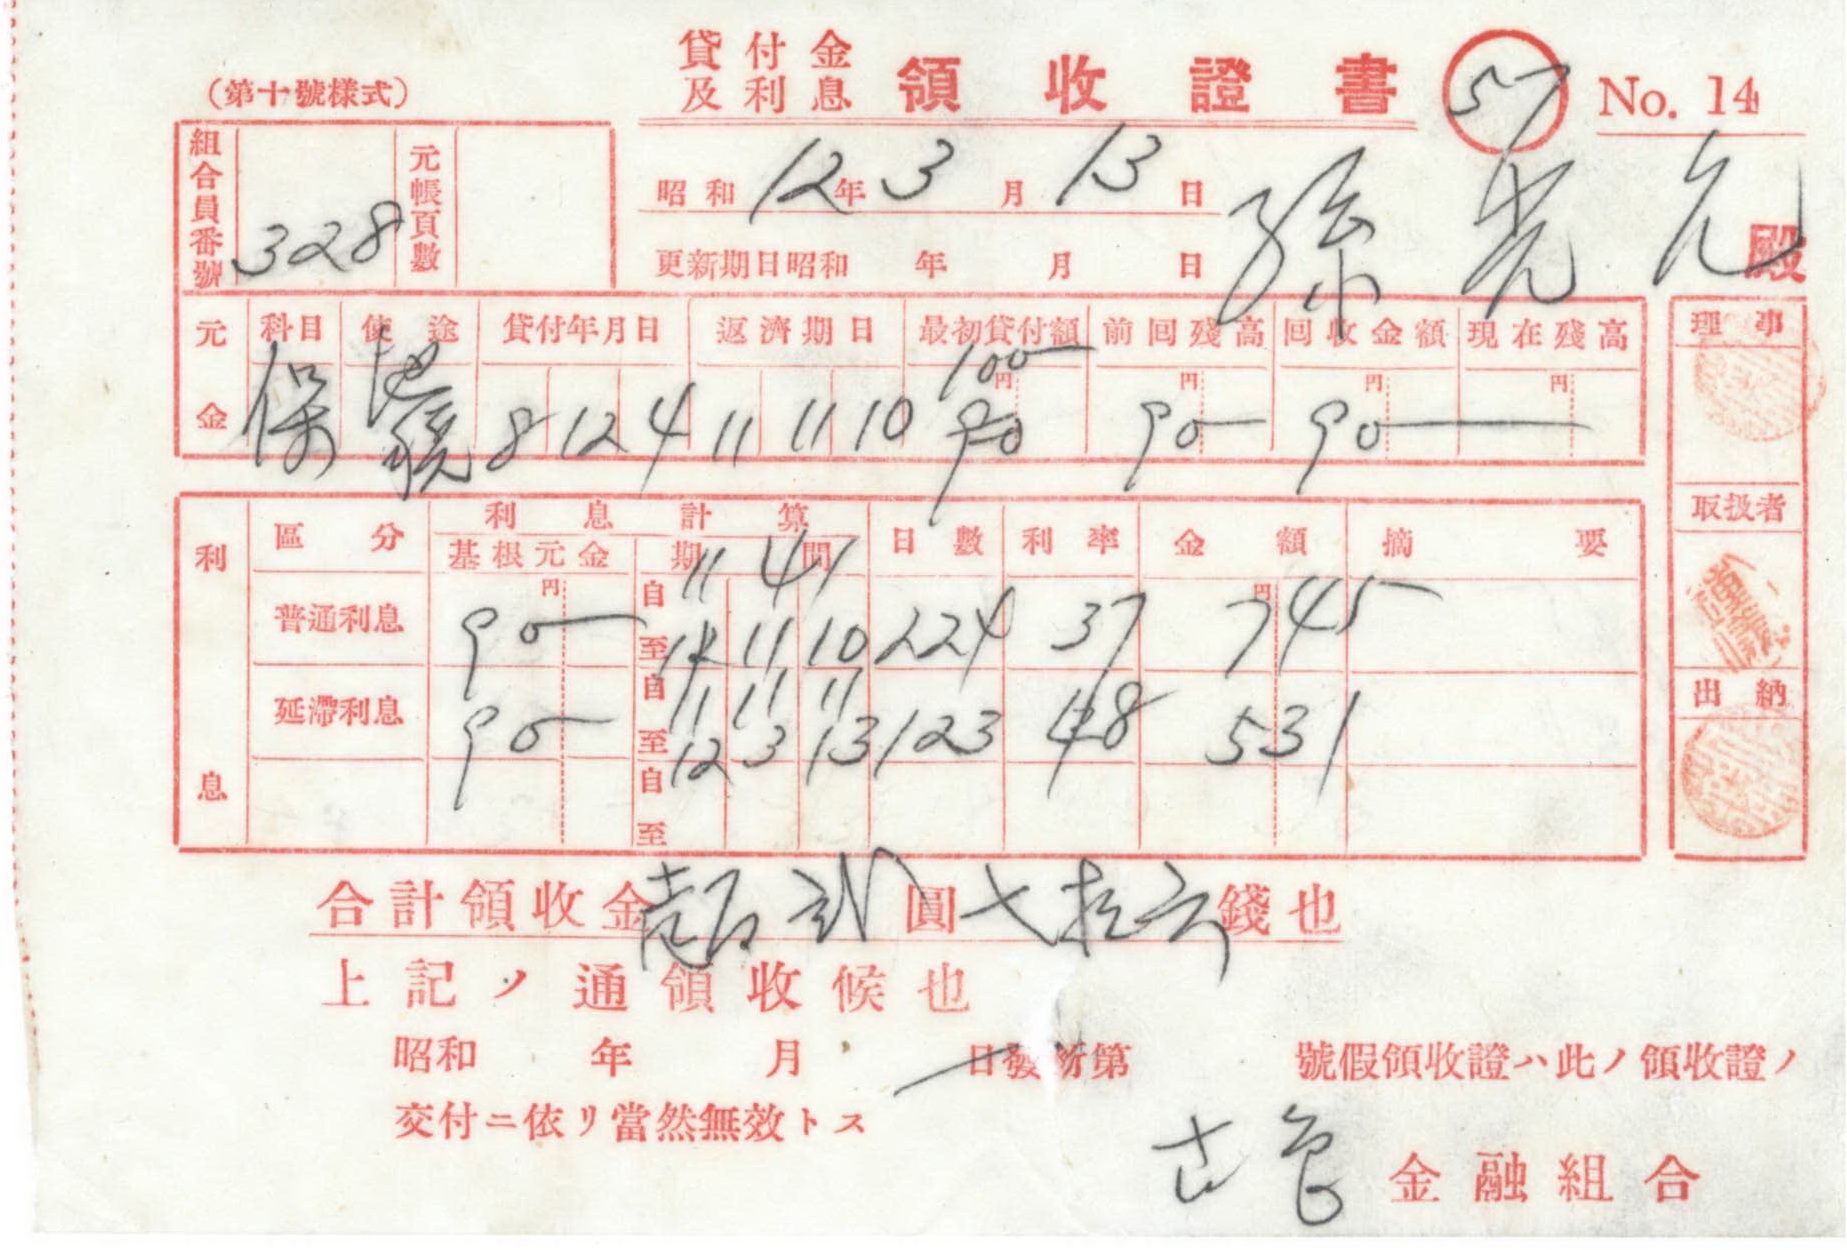 (第十號樣式)
貸付金及利息 領收證書 57 No. 14
組合員番號 328 元帳頁數
昭和 12 年 3 月 13 日
更新期日昭和 年 月 日
孫 光 允 殿
元金 科目 使途 貸付年月日 返濟期日 最初貸付額 前回殘高 回收金額 現在殘高
100
円 円 円 円
保 8 12 4 11 11 10 90 90 90
理事
取扱者
出納
利息 區分 利息計算 日數 利率 金額 摘要
基根元金 期間
円 円
普通利息 90 自 11 4 1
至 11 11 10 224 37 745
延滯利息 90 自 11 11 11
至 12 3 13 123 48 531
自
至
合計領收金 壱百 弐 圓 七拾六 錢也
上記ノ通領收候也
昭和 年 月 日發行第 號假領收證ハ此ノ領收證ノ
交付ニ依リ當然無效トス
古邑 金融組合